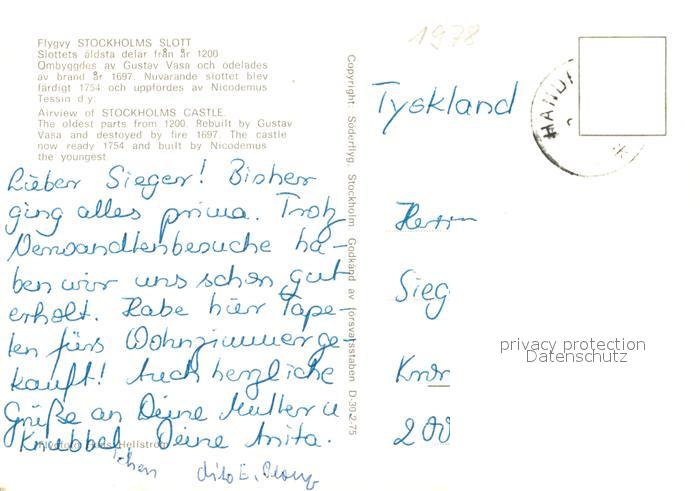 1978
Flygvy STOCKHOLMS SLOTT
Slottets äldsta delar från år 1200
Ombyggdes av Gustav Vasa och ödelades
av brand år 1697. Nuvarande slottet blev
färdigt 1754 och uppfördes av Nicodemus
Tessin d y.
Airview of STOCKHOLMS CASTLE.
The oldest parts from 1200. Rebuilt by Gustav
Vasa and destoyed by fire 1697. The castle
now ready 1754 and built by Nicodemus
the youngest
Lieber Sieger! Bisher
ging alles prima. Trotz
Verwandtenbesuche ha-
ben wir uns schon gut
erholt. Habe hier Tape-
ten fürs Wohnzimmer ge-
kauft! Auch herzliche
Grüße an Deine Mutter u
Knebbel Deine Anita.
chen
dito E.
Hellström
Copyright: Söderflyg, Stockholm Godkänd av försvarsstaben D-30-2-75
HAND
Tyskland
Herrn
Sieg
200
privacy protection
Datenschutz